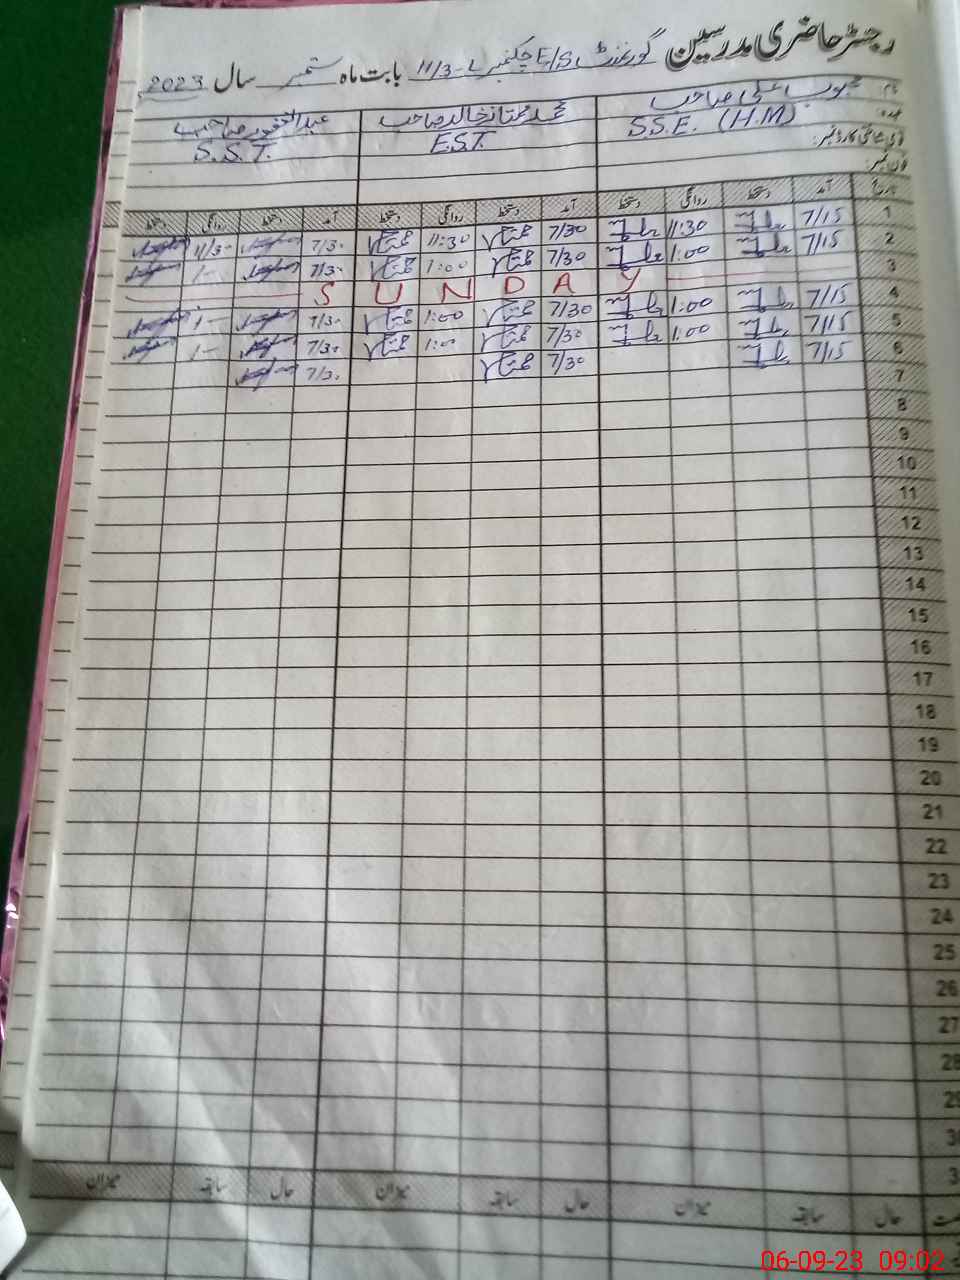 رجسٹر حاضری مدرسین گورنمنٹ E/S چکنمبر 11/3-L بابت ماہ ستمبر سال 2023
نام محبوب علی صاحب محمد ممتاز خالد صاحب عبدالغفور صاحب
عہدہ S.S.E. (H.M) E.S.T. S.S.T.
شناختی کارڈ نمبر:
فون نمبر:
تاریخ آمد دستخط روانگی دستخط آمد دستخط روانگی دستخط آمد دستخط روانگی دستخط
1 7/15 11:30 7/30 11:30 7/30 11/30
2 7/15 1:00 7/30 1:00 7/30 1-
3 SUNDAY
4 7/15 1:00 7/30 1:00 7/30 1-
5 7/15 1:00 7/30 1:00 7/30 1-
6 7/15 7/30 7/30
7
8
9
10
11
12
13
14
15
16
17
18
19
20
21
22
23
24
25
26
27
28
29
30
3
حال سابقہ میزان حال سابقہ میزان حال سابقہ میزان
06-09-23 09:02